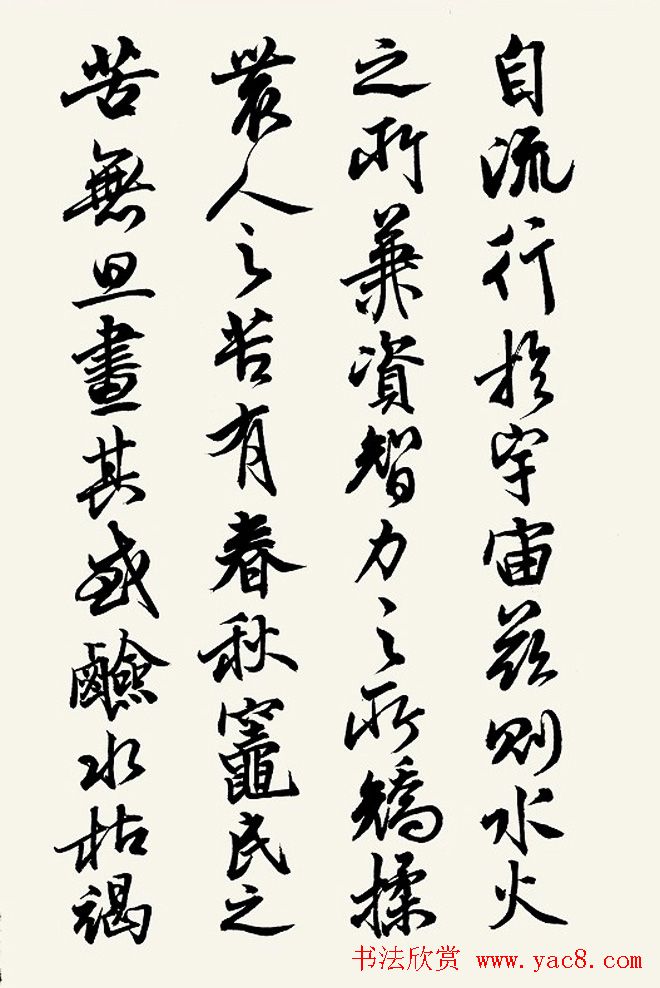 自流行於宇宙茲則水火
之所兼資智力之所矯揉
農人之苦有春秋竈民之
苦無旦晝其或鹼水枯竭
书法欣赏 www.yac8.com